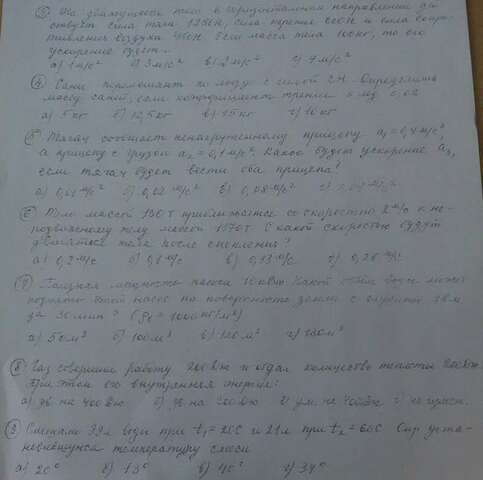 ③ На движущееся тело в горизонтальном направлении де
ствует сила тяги 1250Н, сила трения 600Н и сила сопр
тивления воздуха 450Н. Если масса тела 100кг, то его
ускорение будет..
а) 1м/с² б) 3м/с² в) 2м/с² г) 7м/с²
④ Сани перемещают по льду с силой 2Н. Определить
массу саней, если коэффициент трения 0,02
а) 5кг б) 12,5кг в) 15кг г) 10кг
⑤ Тягач сообщает ненагруженному прицепу а₁=0,4м/с²,
а прицепу с грузом а₂=0,1м/с². Какое будет ускорение а₃,
если тягач будет вести оба прицепа?
а) 0,01м/с² б) 0,02м/с² в) 0,08м/с² г)
⑥ Тело массой 130т приближается со скоростью 2м/с к не-
подвижному телу массой 1170т С какой скоростью будут
двигаться тела после сцепления?
а) 0,2м/с б) 0,1м/с в) 0,13м/с г) 0,26м/с
⑦ Полезная мощность насоса 10кВт. Какой объём воды может
поднять этой насос на поверхность земли с глубины 18м
за 30мин? (ρв=1000кг/м³)
а) 50м³ б) 100м³ в) 120м³ г)
⑧ Газ совершил работу 200Дж и отдал количество теплоты 200Дж.
При этом его внутренняя энергия:
а) ув. на 400Дж б) ув. на 200Дж в) ум. на 400Дж г) не измен.
⑨ Смешали 39л воды при t₁=20С и 21л при t₂=60С Опр уста-
новившуюся температуру смеси
а) 20° б) 13° в) 40° г) 34°